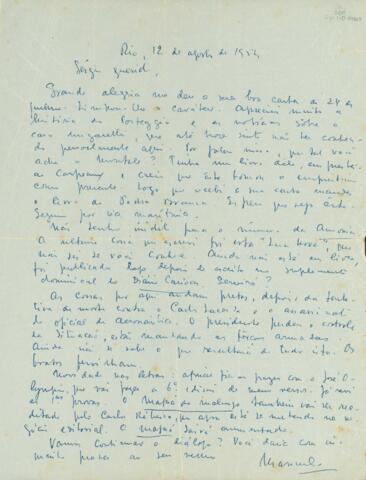 Rio, 12 de agosto de 1954
Sérgio querido,
Grande alegria me deu a sua boa carta de 28 de
julho. Apreciei muito a
notícia da e as notícias sôbre o
caso Ungaretti, que até hoje sinto não ter conhecido
pessoalmente aqui. Por falar nisso, que tal você
acha o Montale? Tenho um livro dele,
a e creio que êste tomou o empréstimo
como presente. Logo que recebi a sua carta mandei
o livro do Pedro
Seguiu por via marítima.
Não tenho inédito para o número da
A última coisa que escrevi foi esta "Lua Nova", que
não sei se você conhece. Ainda não está em livro,
foi publicada logo depois de escrita no suplemento
dominical do Diário Carioca. Servirá?
As coisas por aqui andam pretas, depois da tentativa
de morte contra o Carlos Lacerda e o assassinato
do oficial de aeronáutica. O presidente perdeu o contrôle
da situação, está mandando as fôrças armadas.
Ainda não se sabe o que resultará de tudo isto. Os
boatos fervilham.
Novidades nas letras: apenas fiz as pazes com o José
Olympio, que vai fazer a 6ª edição de meus versos. Já revi
as 1as provas. O Mafuá do malungo também vai ser reeditado
pelo Carlos Ribeiro, que agora está se metendo no
negócio editorial. O Mafuá sairá aumentado.
Vamos continuar o diálogo? Você dará com isto
muito prazer ao seu velho
Manuel